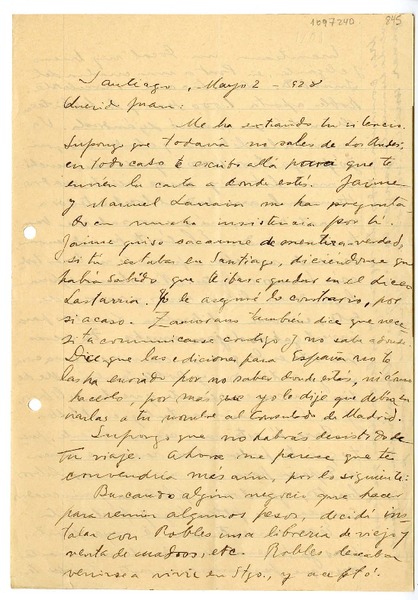 1097240 845
Santiago, Mayo 2 - 928
Querido Juan:
Me ha extrañado tu silencio.
Supongo que todavía no sales de Los Andes,
en todo caso te escribo allá para que te
envíen la carta a donde estés. Jaime
y Manuel Larraín me han pregunta
do con mucha insistencia por ti.
Jaime quiso sacarme de mentira verdad,
si tú estabas en Santiago, diciéndome que
había sabido que te ibas a quedar en el Liceo
Lastarria. Yo le aseguré lo contrario, por
si acaso. Zamorano también dice que nece
sita comunicarse contigo y no sabe adonde.
Dice que las ediciones para España no te
las ha enviado por no saber donde estás, ni cómo
hacerlo, por más que yo le dije que debía en
viarlas a tu nombre al Consulado de Madrid.
Supongo que no habrás desistido de
tu viaje. Ahora me parece que te
convendría más aún, por lo siguiente:
Buscando algún negocio que hacer
para reunir algunos pesos, decidí ins
talar con Robles una librería de viejo y
venta de cuadros, etc. Robles deseaba
venirse a vivir en Stgo., y aceptó.